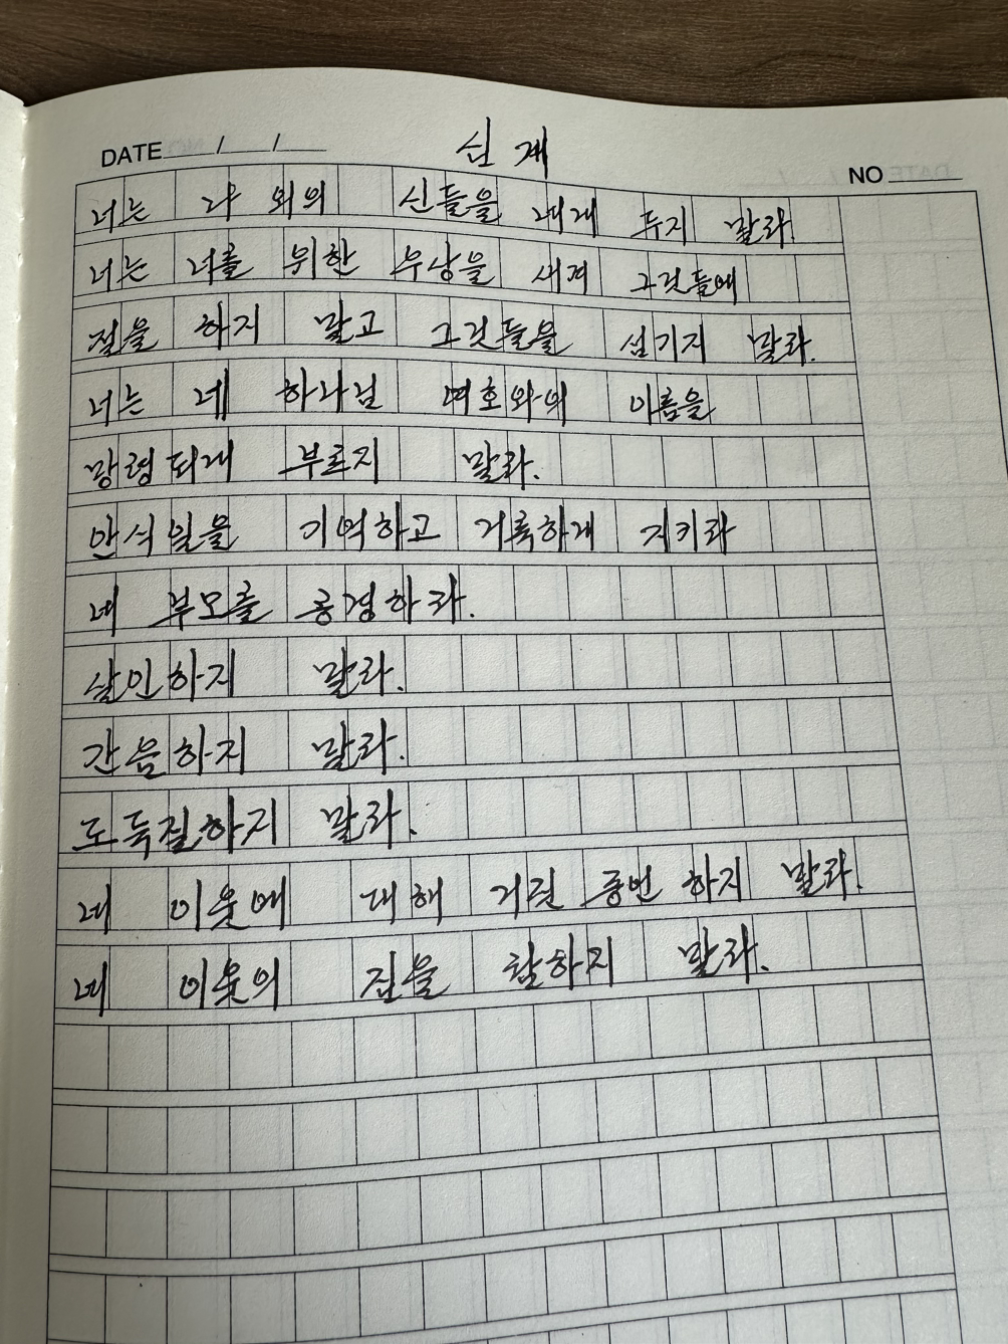 DATE / /
십계
NO
너는 나 외의 신들을 네게 두지 말라.
너는 너를 위한 우상을 새겨 그것들에
절을 하지 말고 그것들을 섬기지 말라.
너는 네 하나님 여호와의 이름을
망령되게 부르지 말라.
안식일을 기억하고 거룩하게 지키라
네 부모를 공경하라.
살인하지 말라.
간음하지 말라.
도둑질하지 말라.
네 이웃에 대해 거짓 증언 하지 말라.
네 이웃의 집을 탐하지 말라.